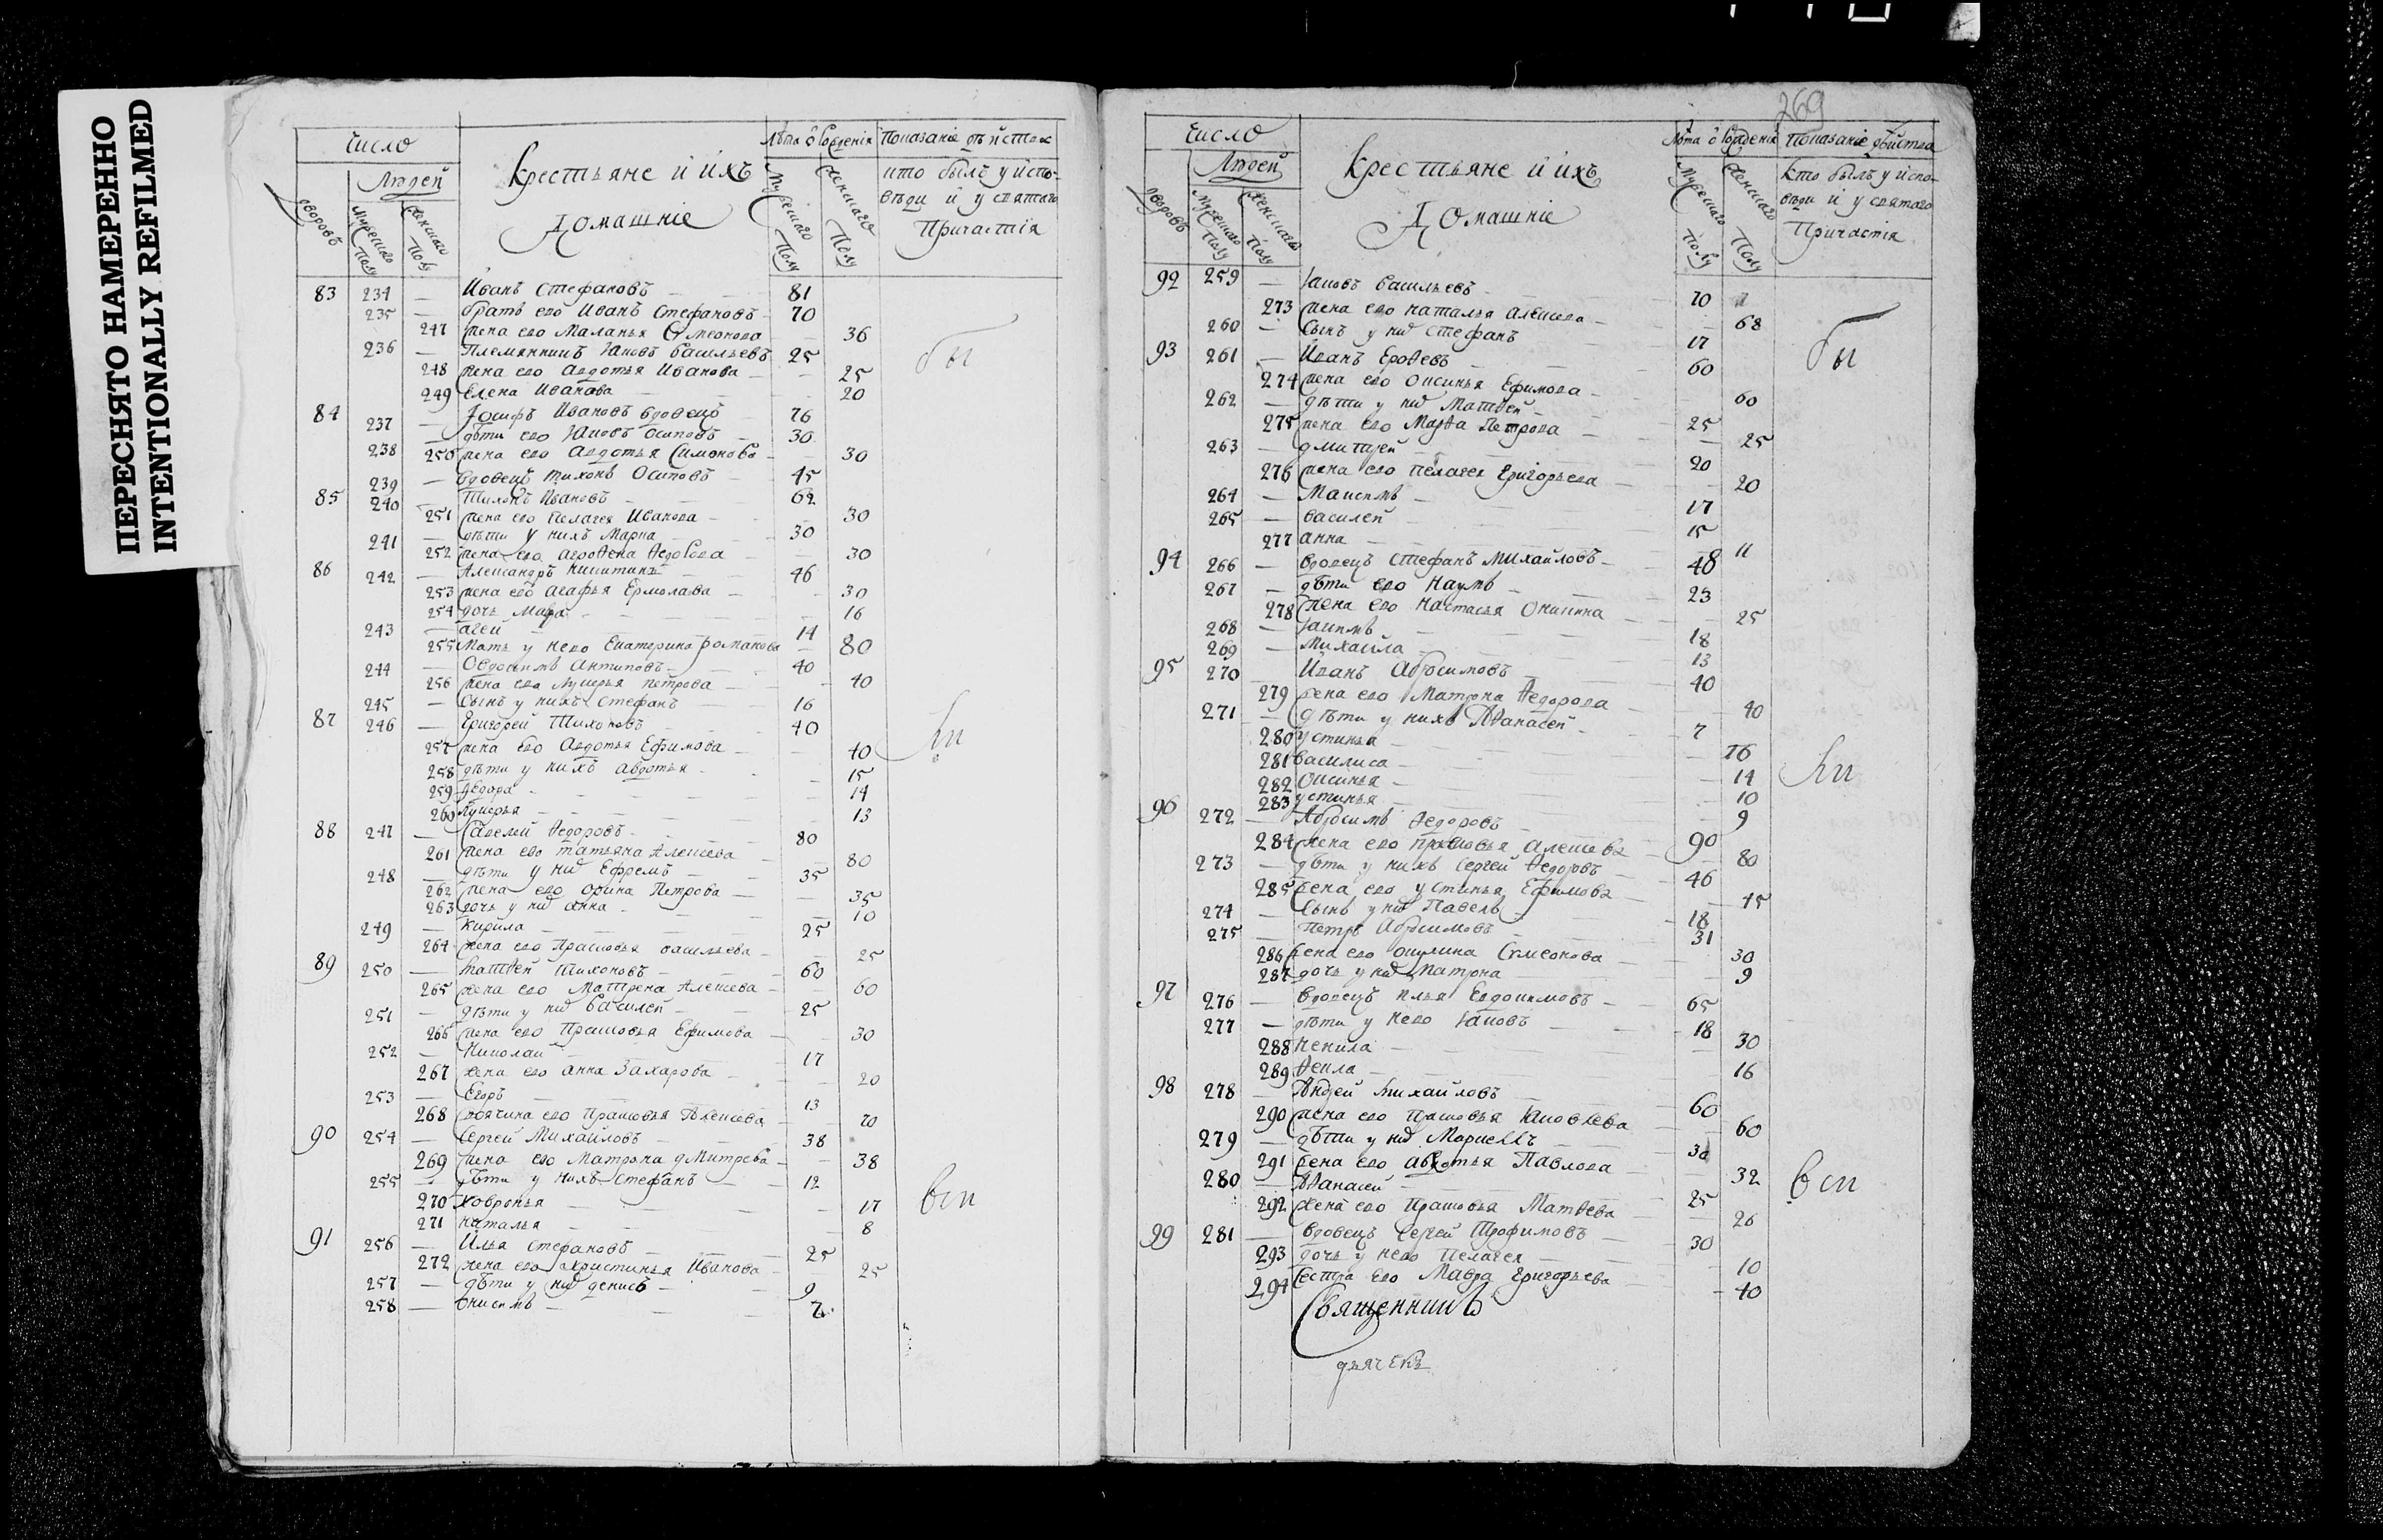 ПЕРЕСНЯТО НАМЕРЕННО
INTENTIONALLY REFILMED
Число
Людей
дворовъ
Мужескаго Полу
женскаго Полу
Крестьяне и ихъ
Домашніе
Лѣта о Рожденія
Мужескаго Полу
женскаго Полу
Показаніе дѣйства
кто былъ у испо-
вѣди и у святаго
Причастія
83 234 — Иванъ Стефановъ 81
235 — братъ его Иванъ Стефановъ 70
247 жена его Маланья Симеонова 36
236 — Племянникъ Яковъ Васильевъ 25
248 жена его Авдотья Иванова 25
249 Елена Иванова 20
84 237 — Іосифъ Ивановъ вдовецъ 76
238 — дѣти его Яковъ Осиповъ 30
250 жена его Авдотья Симонова 30
239 — вдовецъ Тихонъ Осиповъ 45
85 240 — Тихонъ Ивановъ 62
251 жена его Пелагея Иванова 30
241 — дѣти у нихъ Марка 30
252 жена его Агрофена Ѳедорова 30
86 242 — Александръ Никитинъ 46
253 жена его Агафья Ермолаева 30
254 дочь Марфа 16
243 — Агей 14
255 Мать у него Екатерина романова 80
244 — Овдокимъ Антиповъ 40
256 жена его Лукерья петрова 40
245 — Сынъ у нихъ Стефанъ 16
87 246 — Григорей Тихоновъ 40
257 жена его Авдотья Ефимова 40
258 дѣти у нихъ авдотья 15
259 Ѳедора 14
260 Лукерья 13
88 247 — Савелей Ѳедоровъ 80
261 жена его татьяна Алексеева 80
248 — дѣти у них Ефремъ 35
262 жена его орина Петрова 35
263 дочь у них анна 10
249 — Кирила 25
264 жена его Прасковья васильева 25
89 250 — Матѳей Тихоновъ 60
265 жена его Матрена Алексеева 60
251 — дѣти у них Василей 25
266 жена его Прасковья Ефимова 30
252 — Николай 17
267 жена его анна Захарова 20
253 — Егоръ 13
268 его Прасковья Алексеева 70
90 254 — Сергей Михайловъ 38
269 жена его Матрона дмитрева 38
255 — Дѣти у нихъ Стефанъ 12
270 Ховронья 17
271 наталья 8
91 256 — Илья Стефановъ 25
272 жена его христинья Иванова 25
257 — дѣти у них денисъ 9
258 — Онисимъ 7
бы
ли
вси
269
Число
Людей
дворовъ
Мужескаго Полу
женскаго Полу
Крестьяне и ихъ
Домашніе
Лѣта о Рожденія
Мужескаго Полу
женскаго Полу
Показаніе дѣйства
кто былъ у испо-
вѣди и у святаго
Причастія
92 259 — Яковъ Васильевъ 70
273 жена его наталья Алексеева 68
260 — Сынъ у них Стефанъ 17
93 261 — Иванъ Ерофеевъ 60
274 жена его Оксинья Ефимова 60
262 — дѣти у них Матѳей 25
275 жена его Марѳа Петрова 25
263 — дмитрей 20
276 жена его пелагея Григорьева 20
264 — Максимъ 17
265 — василей 15
277 анна 11
94 266 — вдовецъ Стефанъ Михайловъ 48
267 — дѣти его Наумъ 23
278 жена его Настасья Оникина 25
268 — Якимъ 18
269 — Михайла 13
95 270 — Иванъ Абросимовъ 40
279 жена его Матрона Ѳедорова 40
271 — дѣти у нихъ Аѳанасей 7
280 устинья 16
281 василиса 14
282 Оксинья 10
283 устинья 9
96 272 — Абросимъ Ѳедоровъ 90
284 жена его прасковья алексева 80
273 — дѣти у нихъ Сергей Ѳедоровъ 46
285 жена его устинья Ефимова 45
274 — Сынъ у них Павелъ 18
275 — Петръ Абросимовъ 31
286 жена его окулина Симеонова 30
287 дочь у них Матрона 9
97 276 — вдовецъ илья Евдокимовъ 65
277 — дѣти у него Яковъ 18
288 Ненила 30
289 Ѳекла 16
98 278 — Андрей Михайловъ 60
290 жена его Прасковья Яковлева 60
279 — дѣти у них Маркеллъ 30
291 жена его авдотья Павлова 32
280 — Аѳанасей 25
292 жена его Прасковья Матѳеева 26
99 281 — вдовецъ Сергей Трофимовъ 30
293 дочь у него Пелагея 10
294 Сестра его Мавра Григорьева 40
бы
ли
вси
Священникъ
дьячекъ